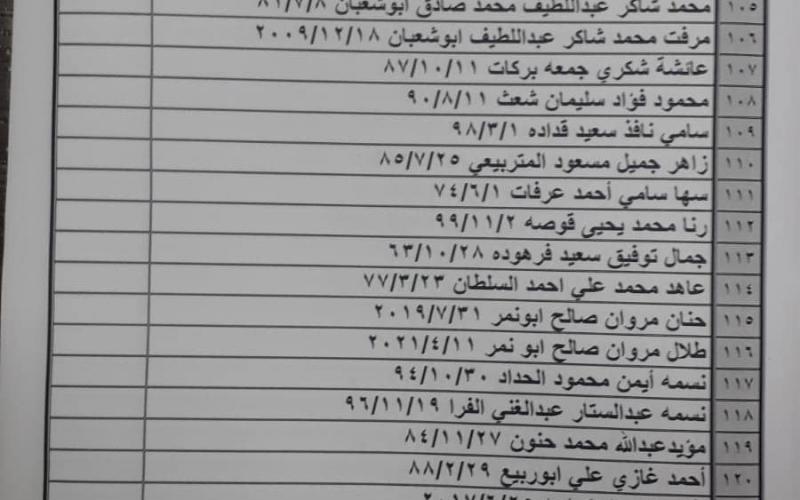 ١٠٥ محمد شاكر عبداللطيف محمد صادق ابوشعبان ٨١/٧/٨
١٠٦ مرفت محمد شاكر عبداللطيف ابوشعبان ٢٠٠٩/١٢/١٨
١٠٧ عائشة شكري جمعه بركات ٨٧/١٠/١١
١٠٨ محمود فؤاد سليمان شعث ٩٠/٨/١١
١٠٩ سامي نافذ سعيد قداده ٩٨/٣/١
١١٠ زاهر جميل مسعود المتربيعي ٨٥/٧/٢٥
١١١ سها سامي أحمد عرفات ٧٤/٦/١
١١٢ رنا محمد يحيى قوصه ٩٩/١١/٢
١١٣ جمال توفيق سعيد فرهوده ٦٣/١٠/٢٨
١١٤ عاهد محمد علي احمد السلطان ٧٧/٣/٢٣
١١٥ حنان مروان صالح ابونمر ٢٠١٩/٧/٣١
١١٦ طلال مروان صالح ابو نمر ٢٠٢١/٤/١١
١١٧ نسمه أيمن محمود الحداد ٩٤/١٠/٣٠
١١٨ نسمه عبدالستار عبدالغني الفرا ٩٦/١١/١٩
١١٩ مؤيدعبدالله محمد حنون ٨٤/١١/٢٧
١٢٠ أحمد غازي علي ابوربيع ٨٨/٢/٢٩